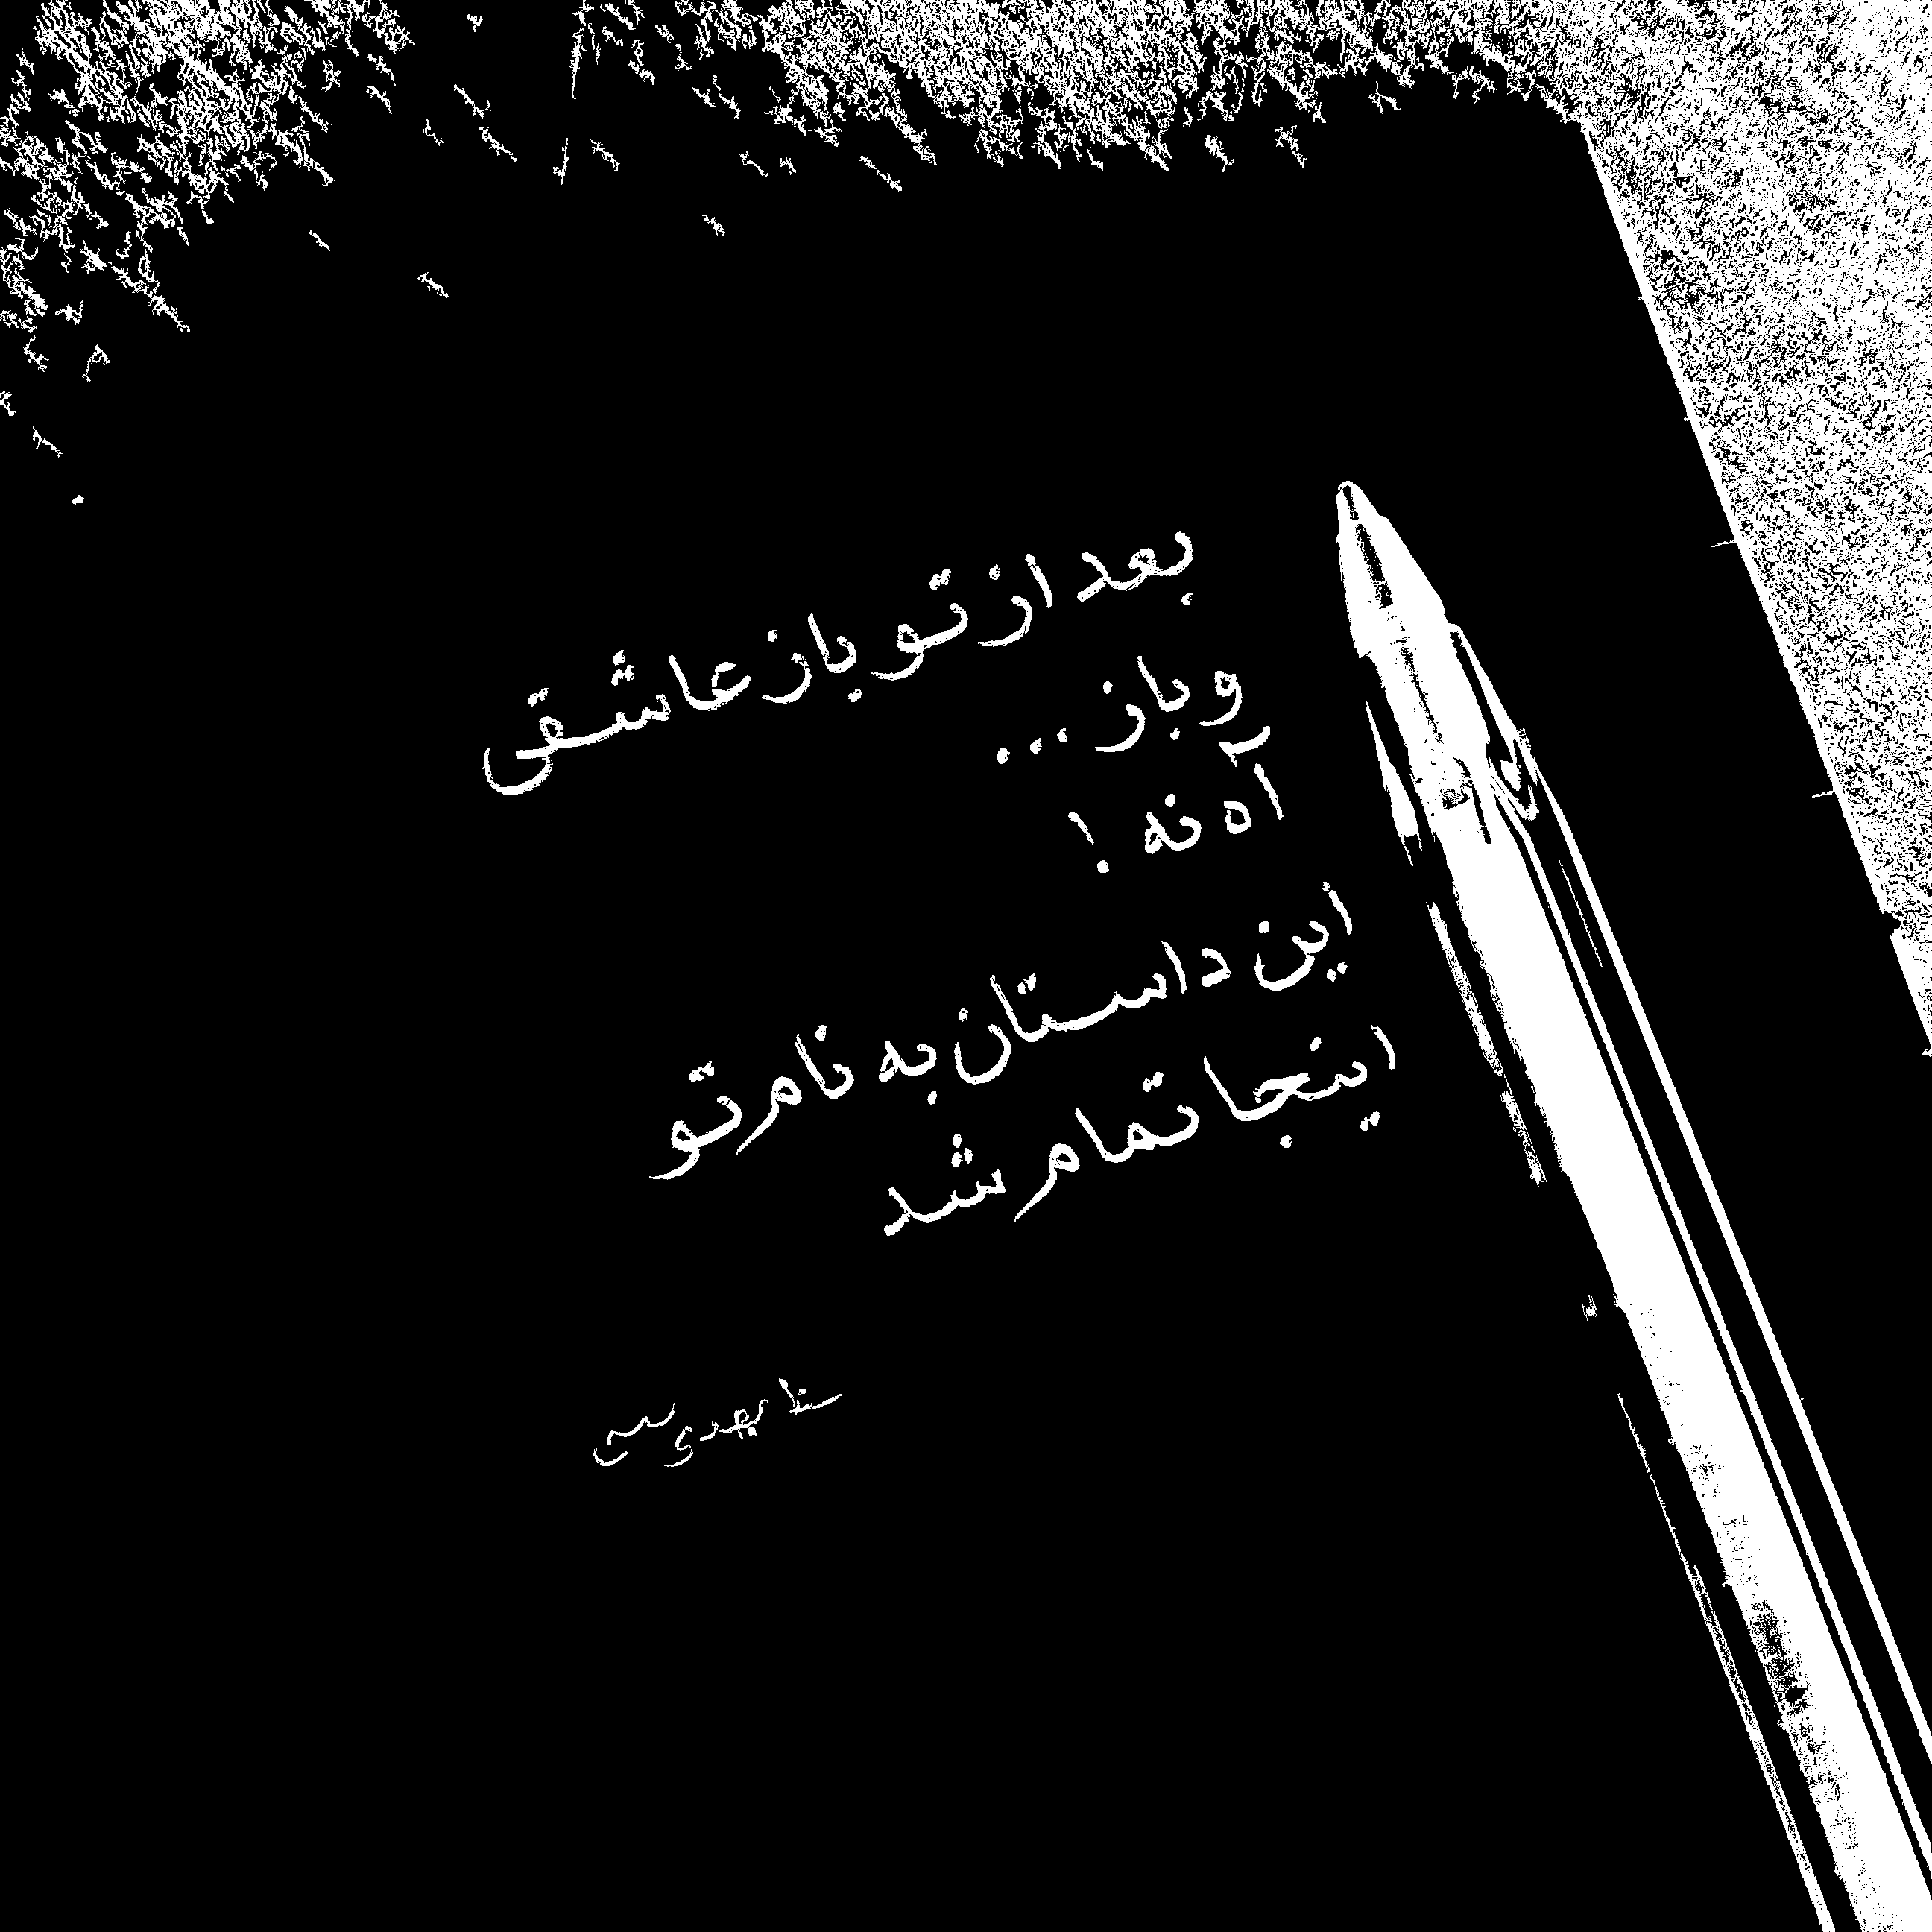 بعد از تو باز عاشقی
و باز ...
آه نه !
این داستان به نام تو
اینجا تمام شد